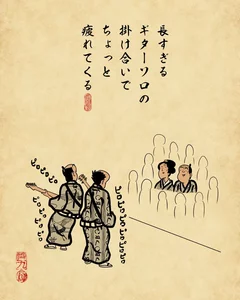 長すぎる
ギターソロの
掛け合いで
ちょっと
疲れてくる
ピロピロピロ
ピロピロピロ
ピロピロピロピロピロ